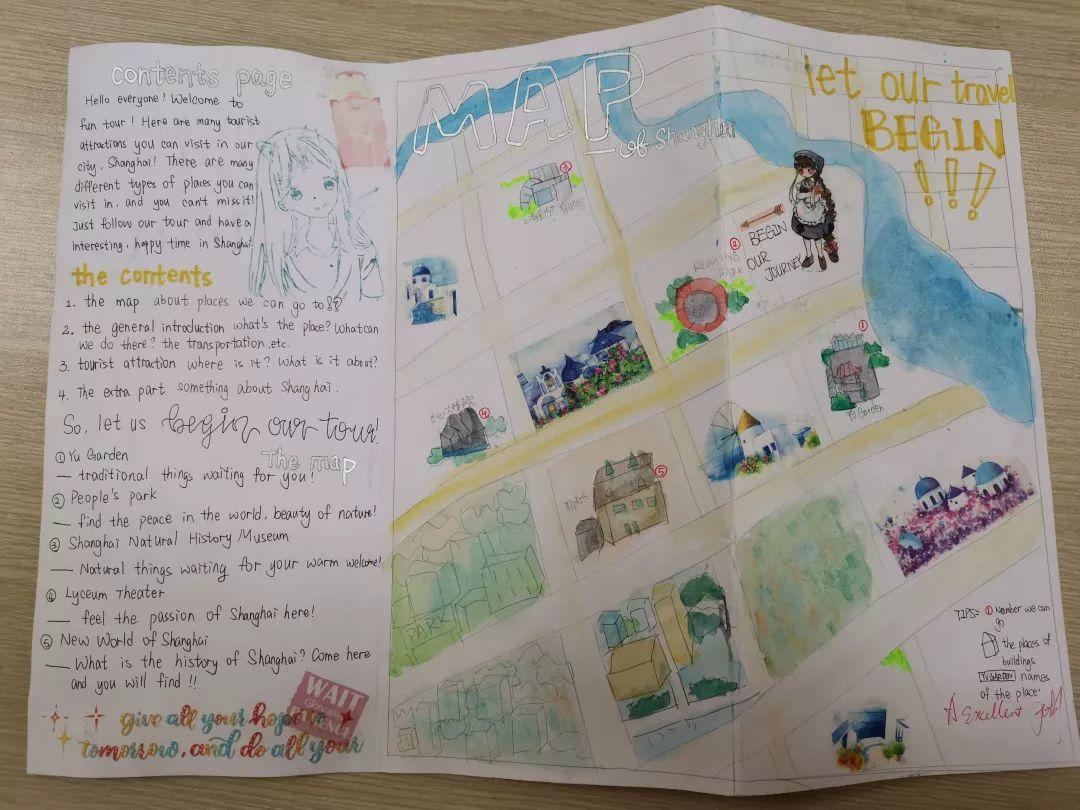 contents page
Hello everyone! Welcome to
fun tour! Here are many tourist
attractions you can visit in our
city, Shanghai! There are many
different types of places you can
visit in, and you can't miss it!
Just follow our tour and have a
interesting, happy time in Shanghai
the contents
1. the map about places we can go to
2. the general introduction what's the place? What can
we do there? the transportation.etc.
3. tourist attraction where is it? What is it about?
4. The extra part something about Shanghai.
So, let us begin our tour!
The map
① Yu Garden
— traditional things waiting for you!
② People's park
— find the peace in the world, beauty of nature!
③ Shanghai Natural History Museum
— Natural things waiting for your warm welcome!
④ Lyceum Theater
— feel the passion of Shanghai here!
⑤ New World of Shanghai
— What is the history of Shanghai? Come here
and you will find!!
WAIT
give all your hope to
tomorrow, and do all your
MAP
of Shanghai
let our travel
BEGIN
!!!
③
②
RENMING
PARK
BEGIN
OUR
JOURNEY
①
Yu Garden
④
⑤
PARK
TIPS: ① Number we can
go
the places of
buildings.
YU GARDEN names
of the place.
A Excellent job!